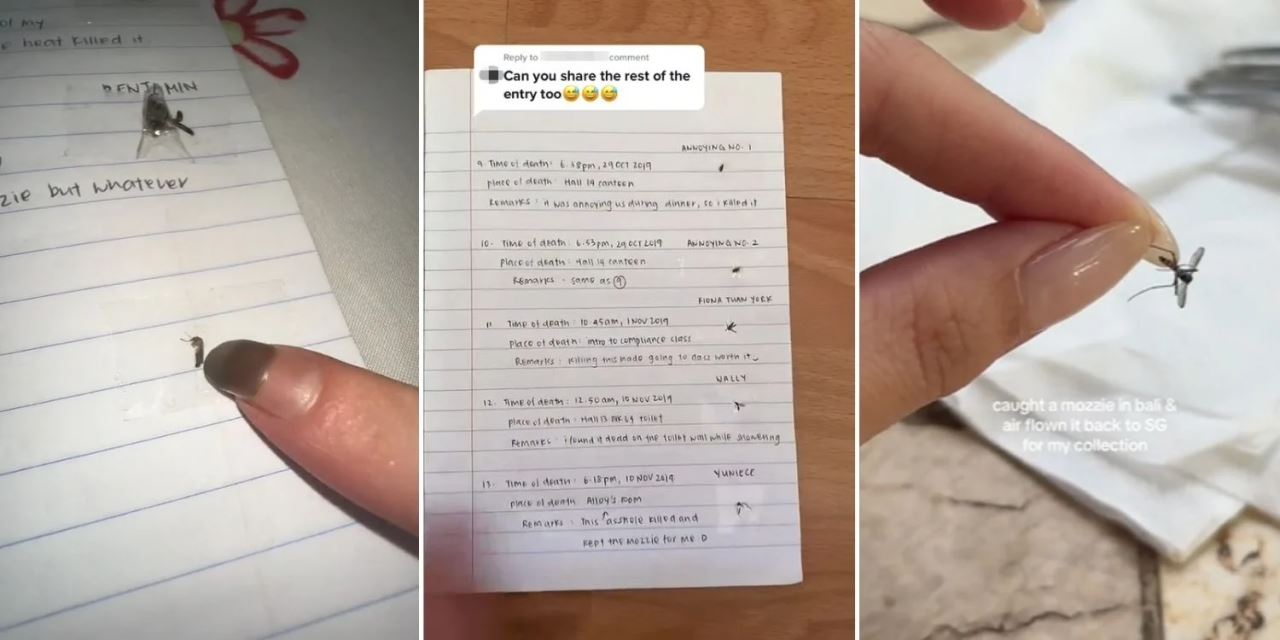 of my
heat killed it.
BENJAMIN
zie but whatever
Reply to comment
Can you share the rest of the
entry too😅😅😅
ANNOYING NO. 1
9. Time of death: 6.48pm, 29 OCT 2019
place of death: Hall 14 canteen
Remarks: it was annoying us during dinner, so i killed it
10. Time of death: 6:53pm, 29 OCT 2019 ANNOYING NO. 2
Place of death: Hall 14 canteen
Remarks: same as 9
FIONA THAN YORK
11 Time of death: 10.45am, 1 NOV 2019
Place of death: intro to compliance class
Remarks: killing this made going to class worth it
WALLY
12. Time of death: 12.50am, 10 NOV 2019
place of death: Hall 13 toilet
Remarks: i found it dead on the toilet wall while showering
YUNIECE
13. Time of death: 6.18pm, 10 NOV 2019
place of death: Alloy's room
Remarks: This asshole killed and
kept the mozzie for me :D
caught a mozzie in bali &
air flown it back to SG
for my collection